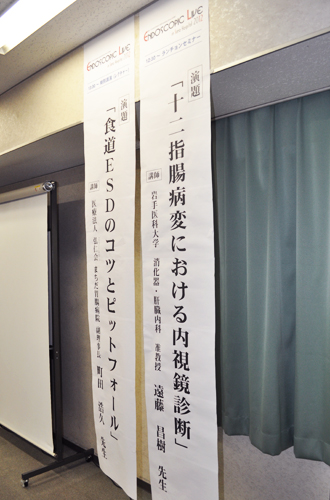 ENDOSCOPIC LIVE
ランチョンセミナー
演題
「十二指腸病変における内視鏡診断」
講師
岩手医科大学 消化器・肝臓内科 准教授 遠藤 昌樹 先生
ENDOSCOPIC LIVE
演題
「食道ESDのコツとピットフォール」
講師
医療法人 弘仁会 まちだ胃腸病院 副理事長 町田 浩久 先生